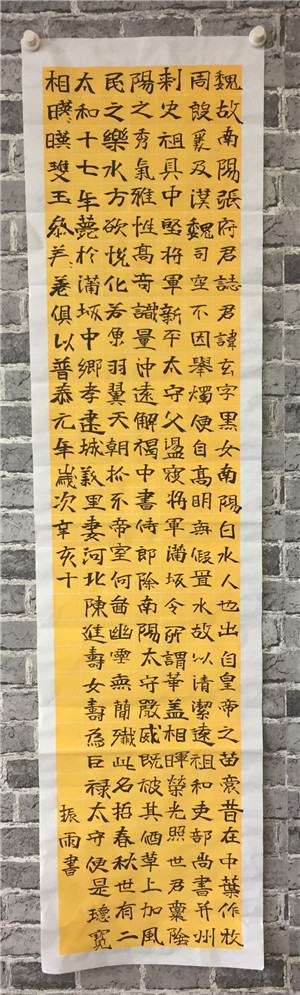 魏故南陽張府君誌君諱玄字黑女南陽白水人也出自皇帝之苗裔昔在中葉作牧
周殷爰及漢魏司空不因舉燭便自高明無假置水故以清潔遠祖和吏部尚書并州
刺史祖具中堅將軍新平太守父盪寇將軍蒲坂令所謂華蓋相暉榮光照世君稟陰
陽之秀氣雅性高奇識量沖遠解褐中書侍郎除南陽太守嚴威既被其猶草上加風
民之樂水方欲悅化若魚羽翼天朝抓不帝室何啚幽靈無簡殲此名哲春秋世有二
太和十七年薨於蒲坂中鄉孝建城義里妻河北陳進壽女壽為巨祿太守便是瓌寶
相暎暎雙玉參差差俱以普泰元年歲次辛亥十
振雨書